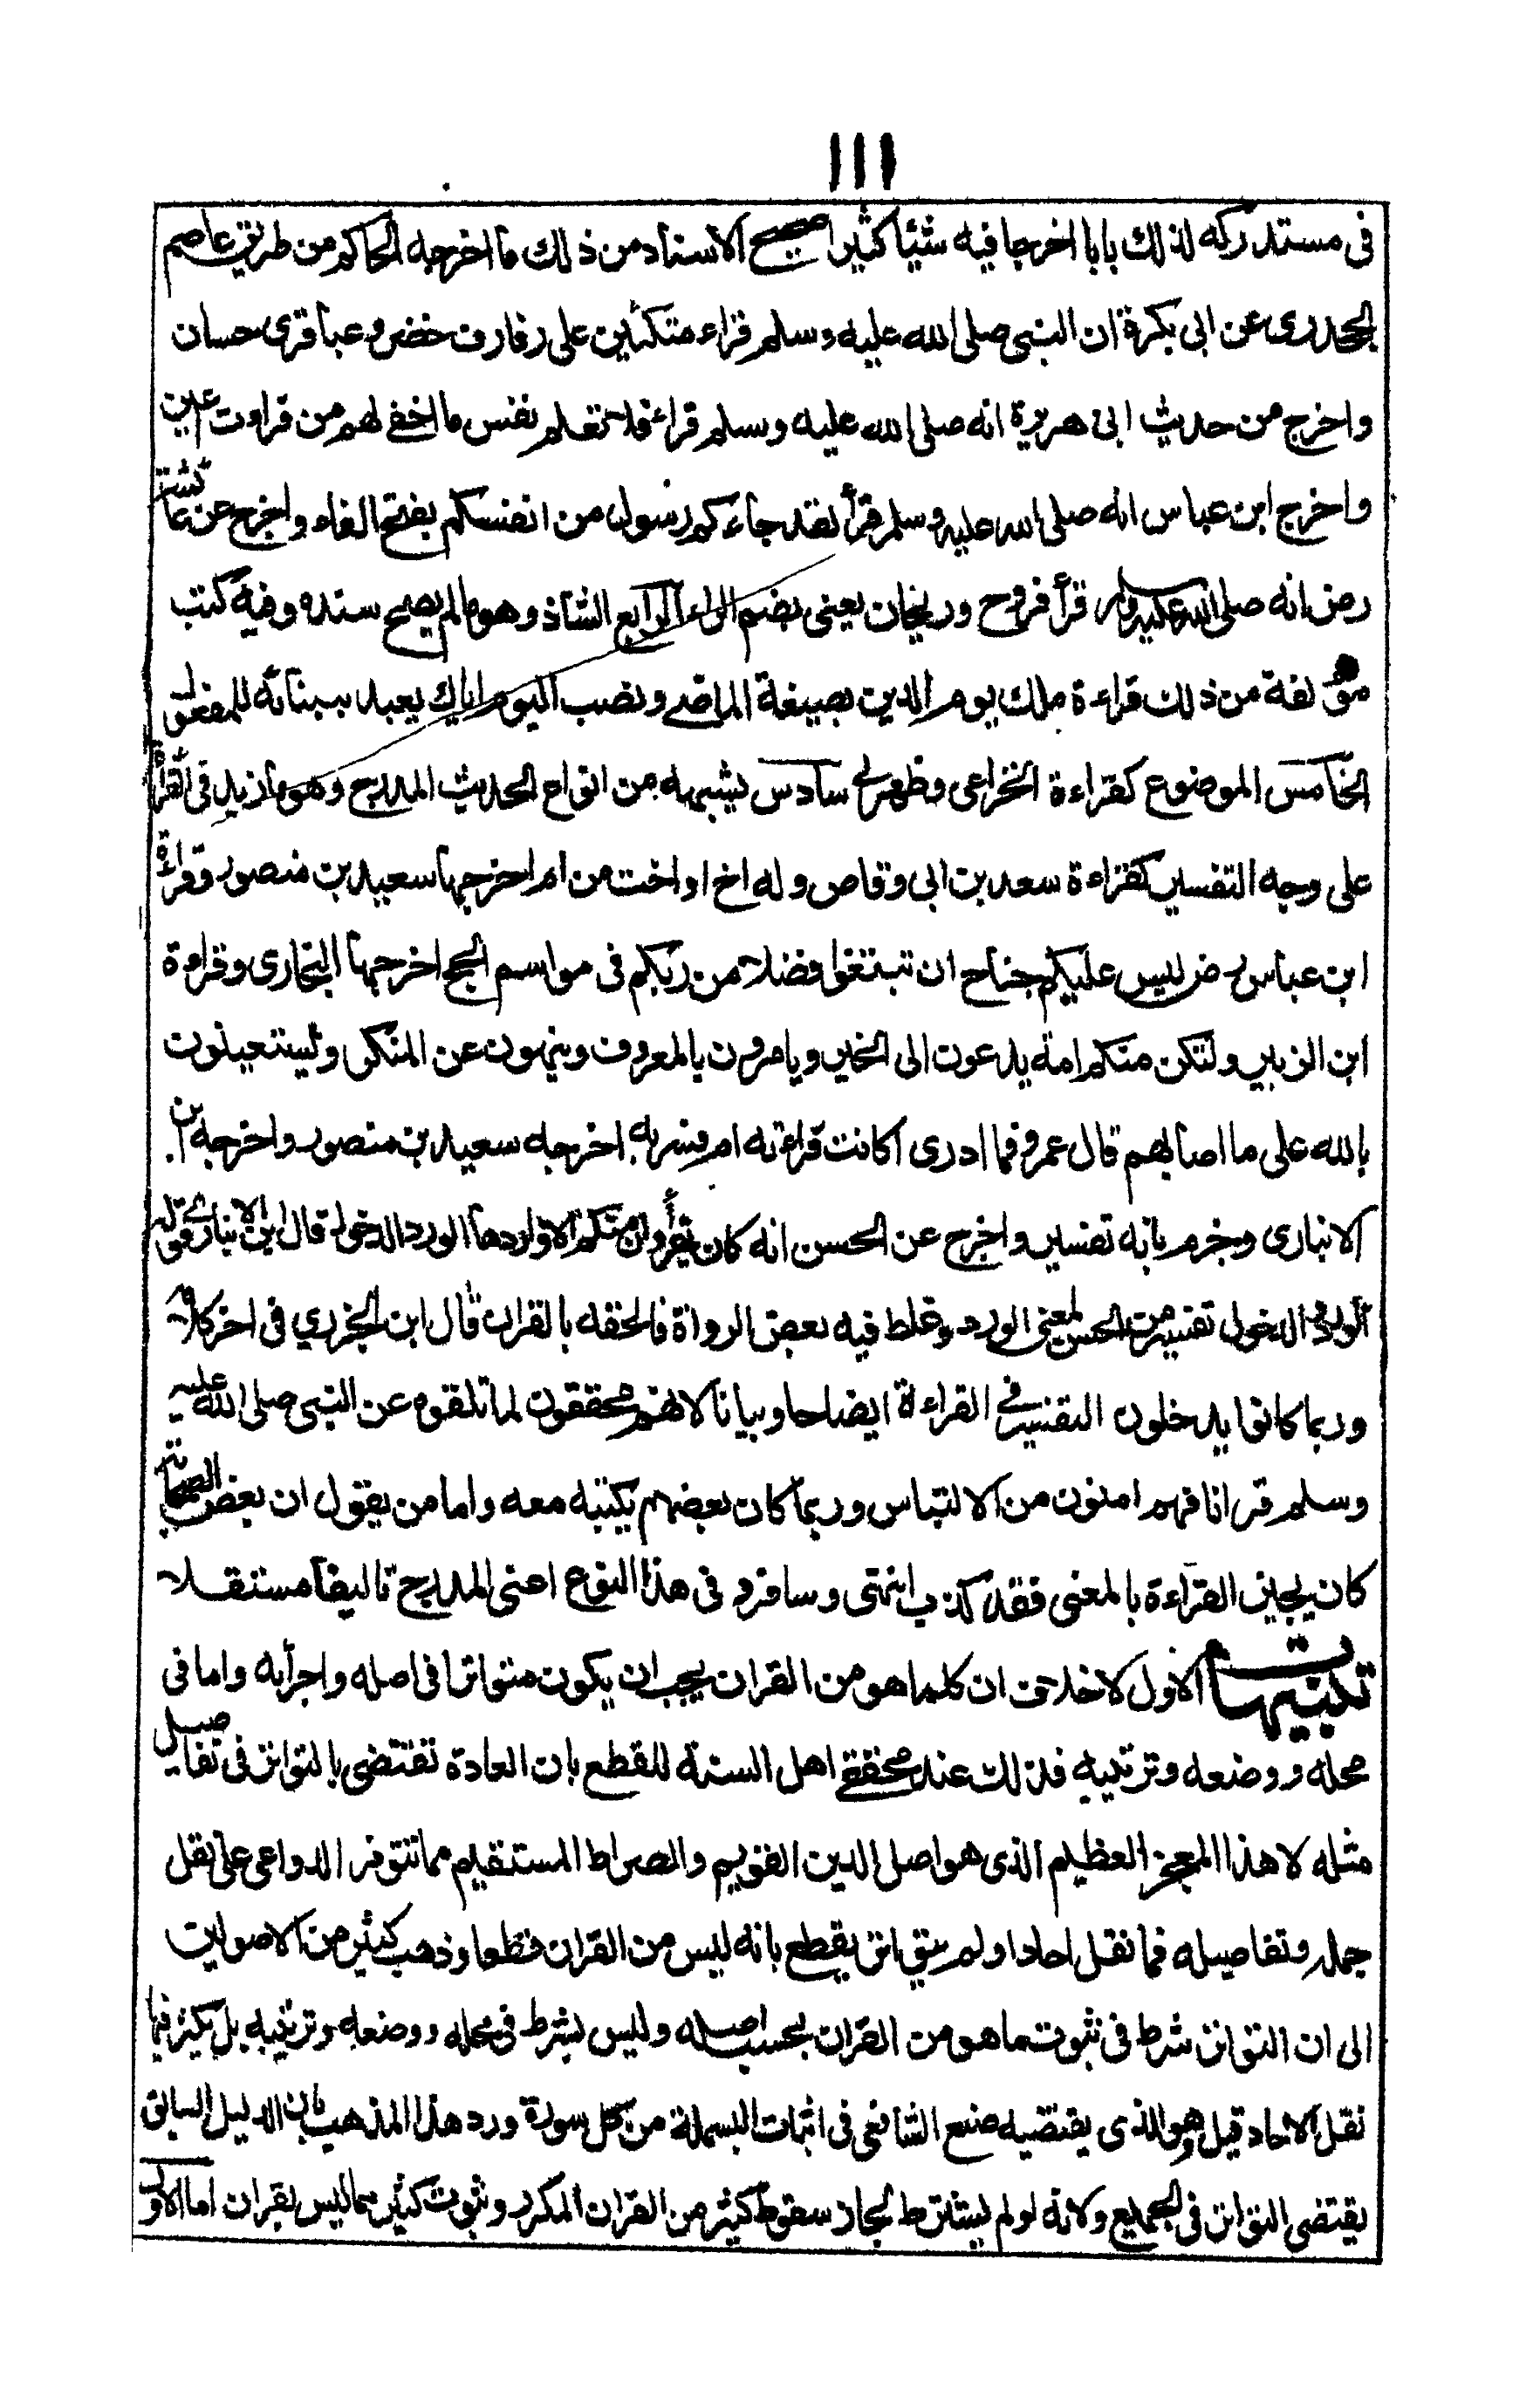 ١١١
فى مستدركه لذلك بابا اخرجا فيه شيئا كثيرا صحيح الاسناد من ذلك ما اخرجه الحاكم من طريق عاصم
الجحدرى عن ابى بكرة ان النبى صلى الله عليه وسلم قراء متكئين على رفارف خضر وعباقرى حسان
واخرج من حديث ابى هريرة انه صلى الله عليه وسلم قراء فلا تعلم نفس ما اخفى لهم من قراءت اعين
واخرج ابن عباس انه صلى الله عليه وسلم قرأ لقد جاءكم رسول من انفسكم بفتح الفاء واخرج عن عائشة
رض انه صلى الله عليه وسلم قرأ فروح وريحان يعنى بضم الراء الرابع الشاذ وهو ما لم يصح سنده وفيه كتب
مؤلفة من ذلك قراءة ملك يوم الدين بصيغة الماضى ونصب اليوم اياك يعبد ببنائه للمفعول
الخامس الموضوع كقراءة الخزاعى وظهر لى سادس يشبهه من انواع الحديث المدرج وهو ما زيد فى القرأة
على وجه التفسير كقراءة سعد بن ابى وقاص وله اخ او اخت من ام اخرجها سعيد بن منصور وقراءة
ابن عباس رض ليس عليكم جناح ان تبتغوا فضلا من ربكم فى مواسم الحج اخرجها البخارى وقراءة
ابن الزبير ولتكن منكم امة يدعون الى الخير ويامرون بالمعروف وينهون عن المنكر ويستعينون
بالله على ما اصابهم قال عمرو فما ادرى اكانت قراءته ام فسر به اخرجه سعيد بن منصور واخرجه ابن
الانبارى وجزم بانه تفسير واخرج عن الحسن انه كان يقرأ وان منكم الا واردها الورود الدخول قال ابن الانبارى قوله
الورود الدخول تفسير من الحسن لمعنى الورود وغلط فيه بعض الرواة فالحقه بالقران قال ابن الجزري فى اخر كلامه
وربما كانوا يدخلون التفسير فى القراءة ايضاحا وبيانا لانهم محققون لما تلقوه عن النبى صلى الله عليه
وسلم قرانا فهم امنون من الالتباس وربما كان بعضهم يكتبه معه واما من يقول ان بعض الصحابة
كان يجيز القراءة بالمعنى فقد كذب انتهى وسافرد فى هذا النوع اعنى المدرج تاليفا مستقلا
تنبيهات الاول لا خلاف ان كلما هو من القران يجب ان يكون متواترا فى اصله واجزأيه واما فى
محله ووضعه وترتيبه فلذلك عند محققى اهل السنة للقطع بان العادة تقتضى بالتواتر فى تفاصيل
مثله لا هذا المعجز العظيم الذى هو اصل الدين القويم والصراط المستقيم مما تتوفر الدواعى على نقل
جمله وتفاصيله فما نقل احادا ولم يتواتر يقطع بانه ليس من القران قطعا وذهب كثير من الاصوليين
الى ان التواتر شرط فى ثبوت ما هو من القران بحسب اصله وليس بشرط فى محله ووضعه وترتيبه بل يكثر فيها
نقل الاحاد قيل وهو الذى يقتضيه صنع الشافعى فى اثبات البسملة من كل سورة ورد هذا المذهب بان الدليل السابق
يقتضى التواتر فى الجميع ولانه لو لم يشترط لجاز سقوط كثير من القران المكرر وثبوت كثير مما ليس بقران اما الاول